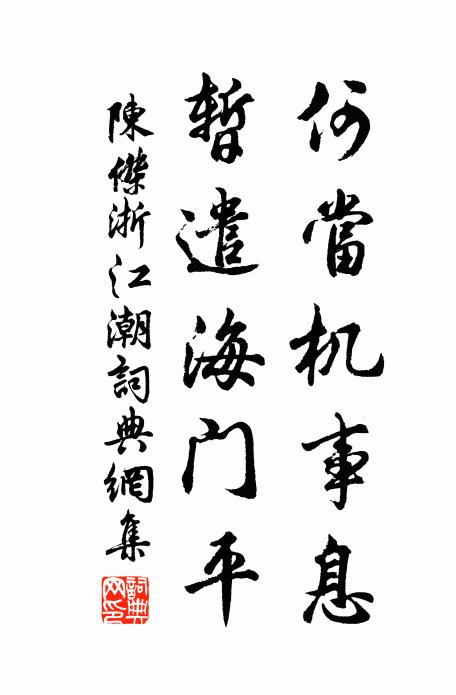 何當机事息
暫遣海門平
陳傑浙江潮詞典網集
詞典网印